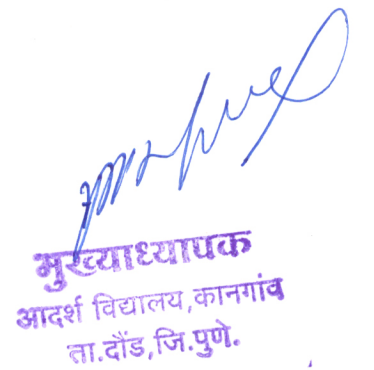 मुख्याध्यापक
आदर्श विद्यालय,कानगांव
ता.दौंड,जि.पुणे.